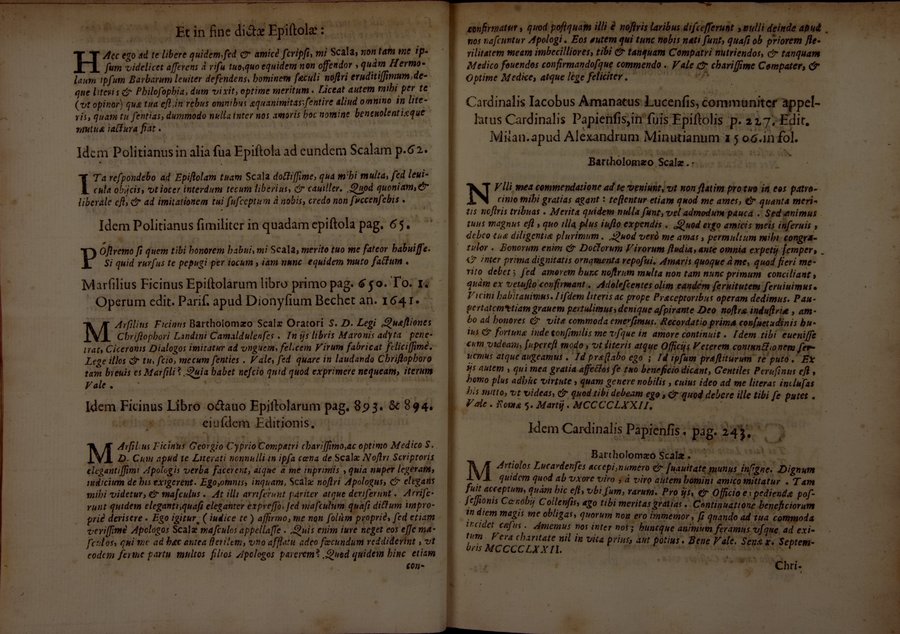 Et in fine dictæ Epistolæ:
HAec ego ad te libere quidem, sed & amicè scripsi, mi Scala, non tam me ip-
sum videlicet asserens à risu tuo, quo equidem non offendor, quàm Hermo-
laum ipsum Barbarum leuiter defendens, hominem sæculi nostri eruditissimum, de-
que literis & Philosophia, dum vixit, optime meritum. Liceat autem mihi per te
(vt opinor) qua tua est in rebus omnibus æquanimitas: sentire aliud omnino in lite-
ris, quam tu sentias, dummodo nulla inter nos amoris hoc nomine beneuolentiæque
mutuæ iactura fiat.
Idem Politianus in alia sua Epistola ad eundem Scalam p.62.
ITa respondebo ad Epistolam tuam Scala doctissime, qua mihi multa, sed leui-
cula obijcis, vt iocer interdum tecum liberius, & cauiller. Quod quoniam, &
liberale est, & ad imitationem tui susceptum à nobis, credo non succensebis.
Idem Politianus similiter in quadam epistola pag. 65.
POstremo si quem tibi honorem habui, mi Scala, merito tuo me fateor habuisse.
Si quid rursus te pepugi per iocum, iam nunc equidem muto factum.
Marsilius Ficinus Epistolarum libro primo pag. 650. To. 1.
Operum edit. Paris. apud Dionysium Bechet an. 1641.
MArsilius Ficinus Bartholomæo Scalæ Oratori S. D. Legi Quæstiones
Christophori Landini Camaldulenses. In ijs libris Maronis adyta pene-
trat, Ciceronis Dialogos imitatur ad vnguem, felicem Virum fabricat felicissimè.
Lege illos & tu, scio, mecum senties. Vale, sed quare in laudando Christophoro
tam breuis es Marsili? Quia babet nescio quid quod exprimere nequeam, iterum
Vale.
Idem Ficinus Libro octauo Epistolarum pag. 893. & 894.
eiusdem Editionis.
MArsilius Ficinus Georgio Cyprio Compatri charissimo, ac optimo Medico S.
D. Cum apud te Literati nonnulli in ipsa cœna de Scalæ Nostri Scriptoris
elegantissimi Apologis verba facerent, atque à me inprimis, quia nuper legeram,
iudicium de his exigerent. Ego, omnis, inquam, Scalæ nostri Apologus, & elegans
mihi videtur, & masculus. At illi arriserunt pariter atque deriserunt. Arrise-
runt quidem eleganti, quasi eleganter expresso, sed masculum quasi dictum impro-
priè derisere. Ego igitur, (iudice te) affirmo, me non solum propriè, sed etiam
verissimè Apologos Scalæ masculos appellasse. Quis enim iure neget eos esse ma-
sculos, qui me ad hæc autea sterilem, vno afflatu adeo fœcundum reddiderint, vt
eodem ferme partu multos filios Apologos parerem? Quod quidem hinc etiam
con-
confirmatur, quod postquam illi è nostris laribus discesserunt, nulli deinde apud
nos nascuntur Apologi. Eos autem qui tunc nobis nati sunt, quasi ob priorem ste-
rilitatem meam imbecilliores, tibi & tanquam Compatri nutriendos, & tanquam
Medico fouendos confirmandosque commendo. Vale & charissime Compater, &
Optime Medice, atque lege feliciter.
Cardinalis Iacobus Amanatus Lucensis, communiter appel-
latus Cardinalis Papiensis, in suis Epistolis p. 227. Edit.
Milan. apud Alexandrum Minutianum 1506. in fol.
Bartholomæo Scalæ.
NVlli mea commendatione ad te veniunt, vt non statim pro tuo in eos patro-
cinio mihi gratias agant: testentur etiam quod me ames, & quanta meri-
tis nostris tribuas. Merita quidem nulla sunt, vel admodum pauca. Sed animus
tuus magnus est, quo illa plus iusto expendis. Quod ergo amicis meis inseruis,
debeo tuæ diligentiæ plurimum. Quod verò me amas, permultum mihi congra-
tulor. Bonorum enim & Doctorum Virorum studia, ante omnia expetij semper,
& inter prima dignitatis ornamenta reposui. Amaris quoque à me, quod fieri me-
rito debet; sed amorem hunc nostrum multa non tam nunc primum conciliant,
quàm ex vetusto confirmant. Adolescentes olim eandem seruitutem seruiuimus.
Vicini habitauimus. Iisdem literis ac prope Præceptoribus operam dedimus. Pau-
pertatem etiam grauem pertulimus, denique aspirante Deo nostræ industriæ, am-
bo ad honores & vitæ commoda emersimus. Recordatio prima consuetudinis hu-
ius & fortunæ inde consimilis me vsque in amore continuit. Idem tibi euenisse
cum videam, superest modo, vt literis atque Officijs Veterem coniunctionem ser-
uemus atque augeamus. Id præstabo ego; Id ipsum præstiturum te puto. Ex
ijs autem, qui mea gratia affectos se tuo beneficio dicant, Gentiles Perusinus est,
homo plus adhuc virtute, quam genere nobilis, cuius ideo ad me literas inclusas
his mitto, vt videas, & quod tibi debeam ego, & quod debere ille tibi se putet.
Vale. Romæ 5. Martij. MCCCCLXXII.
Idem Cardinalis Papiensis. pag. 243.
Bartholomæo Scalæ.
MArtiolos Lucardenses accepi, numero & suauitate munus insigne. Dignum
quidem quod ab vxore viro, à viro autem homini amico mittatur. Tam
fuit acceptum, quàm hic est, vbi sum, rarum. Pro ijs, & Officio expediendæ pos-
sessionis Cœnobij Collensis, ago tibi meritas gratias. Continuatione beneficiorum
in diem magis me obligas, quorum non ero immemor, si quando ad tua commoda
incidet casus. Amemus nos inter nos; huncque animum feramus vsque ad exi-
tum. Vera charitate nil in vita prius, aut potius. Bene Vale. Senæ x. Septem-
bris MCCCCLXXII.
Chri-